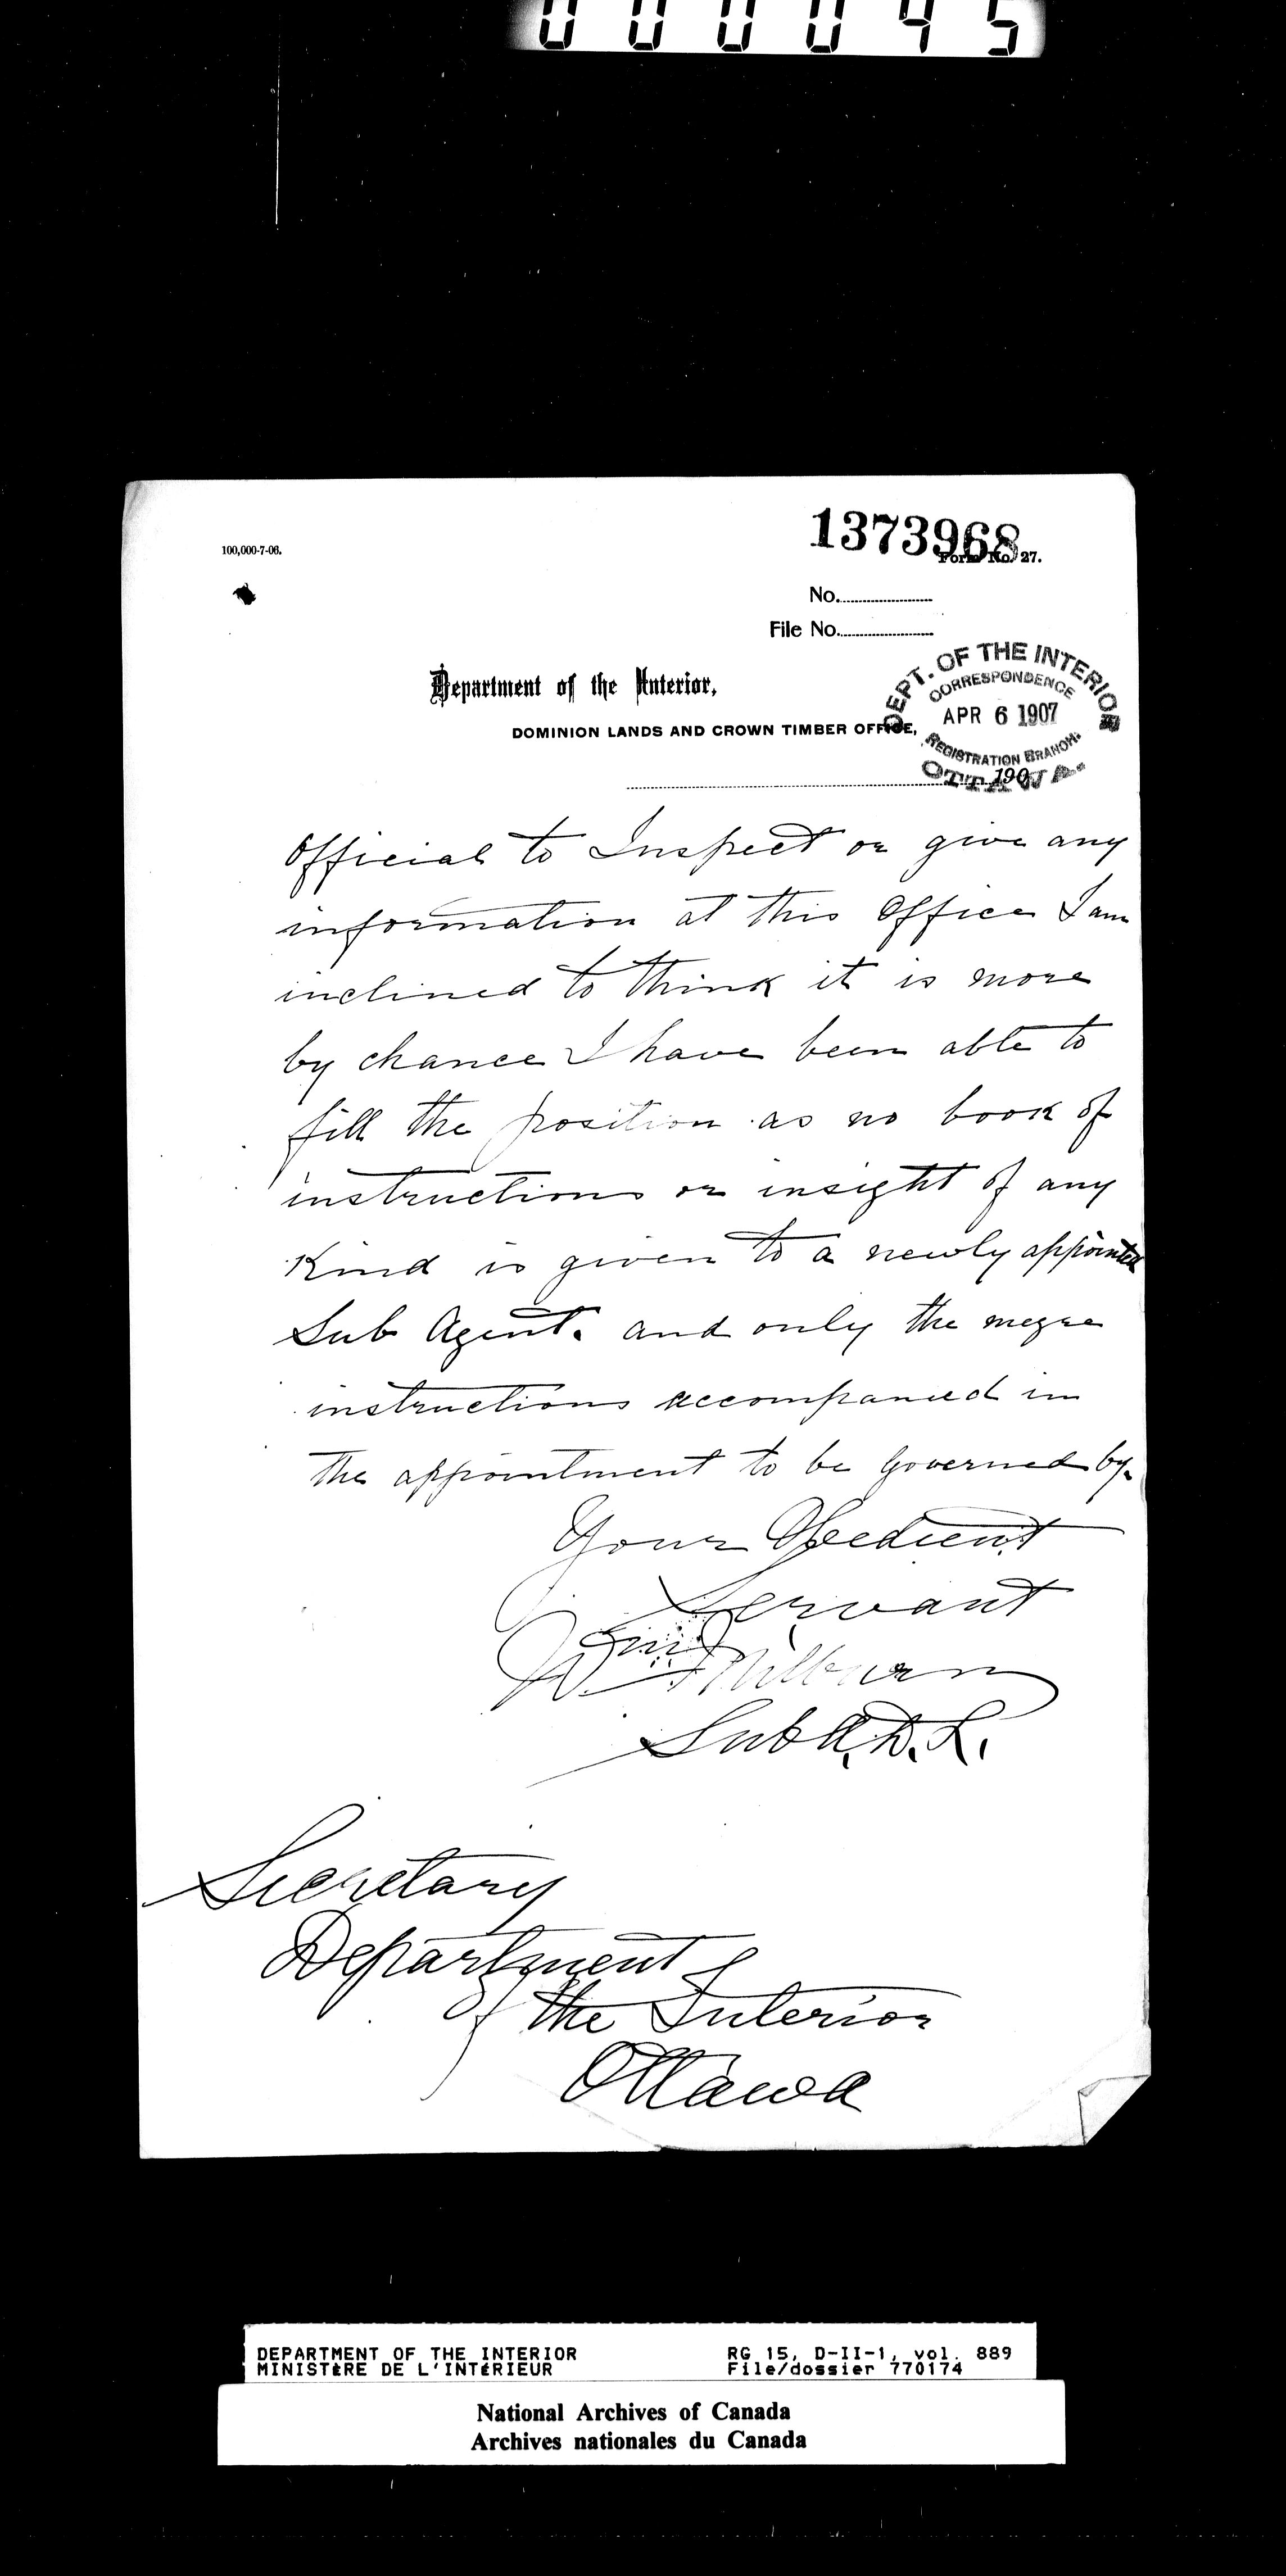 000045
1373968
100,000-7-06.
Form No. 27.
No.
File No.
DEPT. OF THE INTERIOR
CORRESPONDENCE
APR 6 1907
REGISTRATION BRANCH.
OTTAWA.
Department of the Interior,
DOMINION LANDS AND CROWN TIMBER OFFICE,
190
Official to Inspect or give any
information at this Office I am
inclined to think it is more
by chance I have been able to
fill the position as no book of
instructions or insight of any
Kind is given to a newly appointed
Sub Agent. and only the megre
instructions accompanied in
the appointment to be Governed by.
Your Obedient
Servant
Wm Milburn
Sub A. D. L.
Secretary
Department
of the Interior
Ottawa
DEPARTMENT OF THE INTERIOR
MINISTÈRE DE L'INTÉRIEUR
RG 15, D-II-1, vol. 889
File/dossier 770174
National Archives of Canada
Archives nationales du Canada